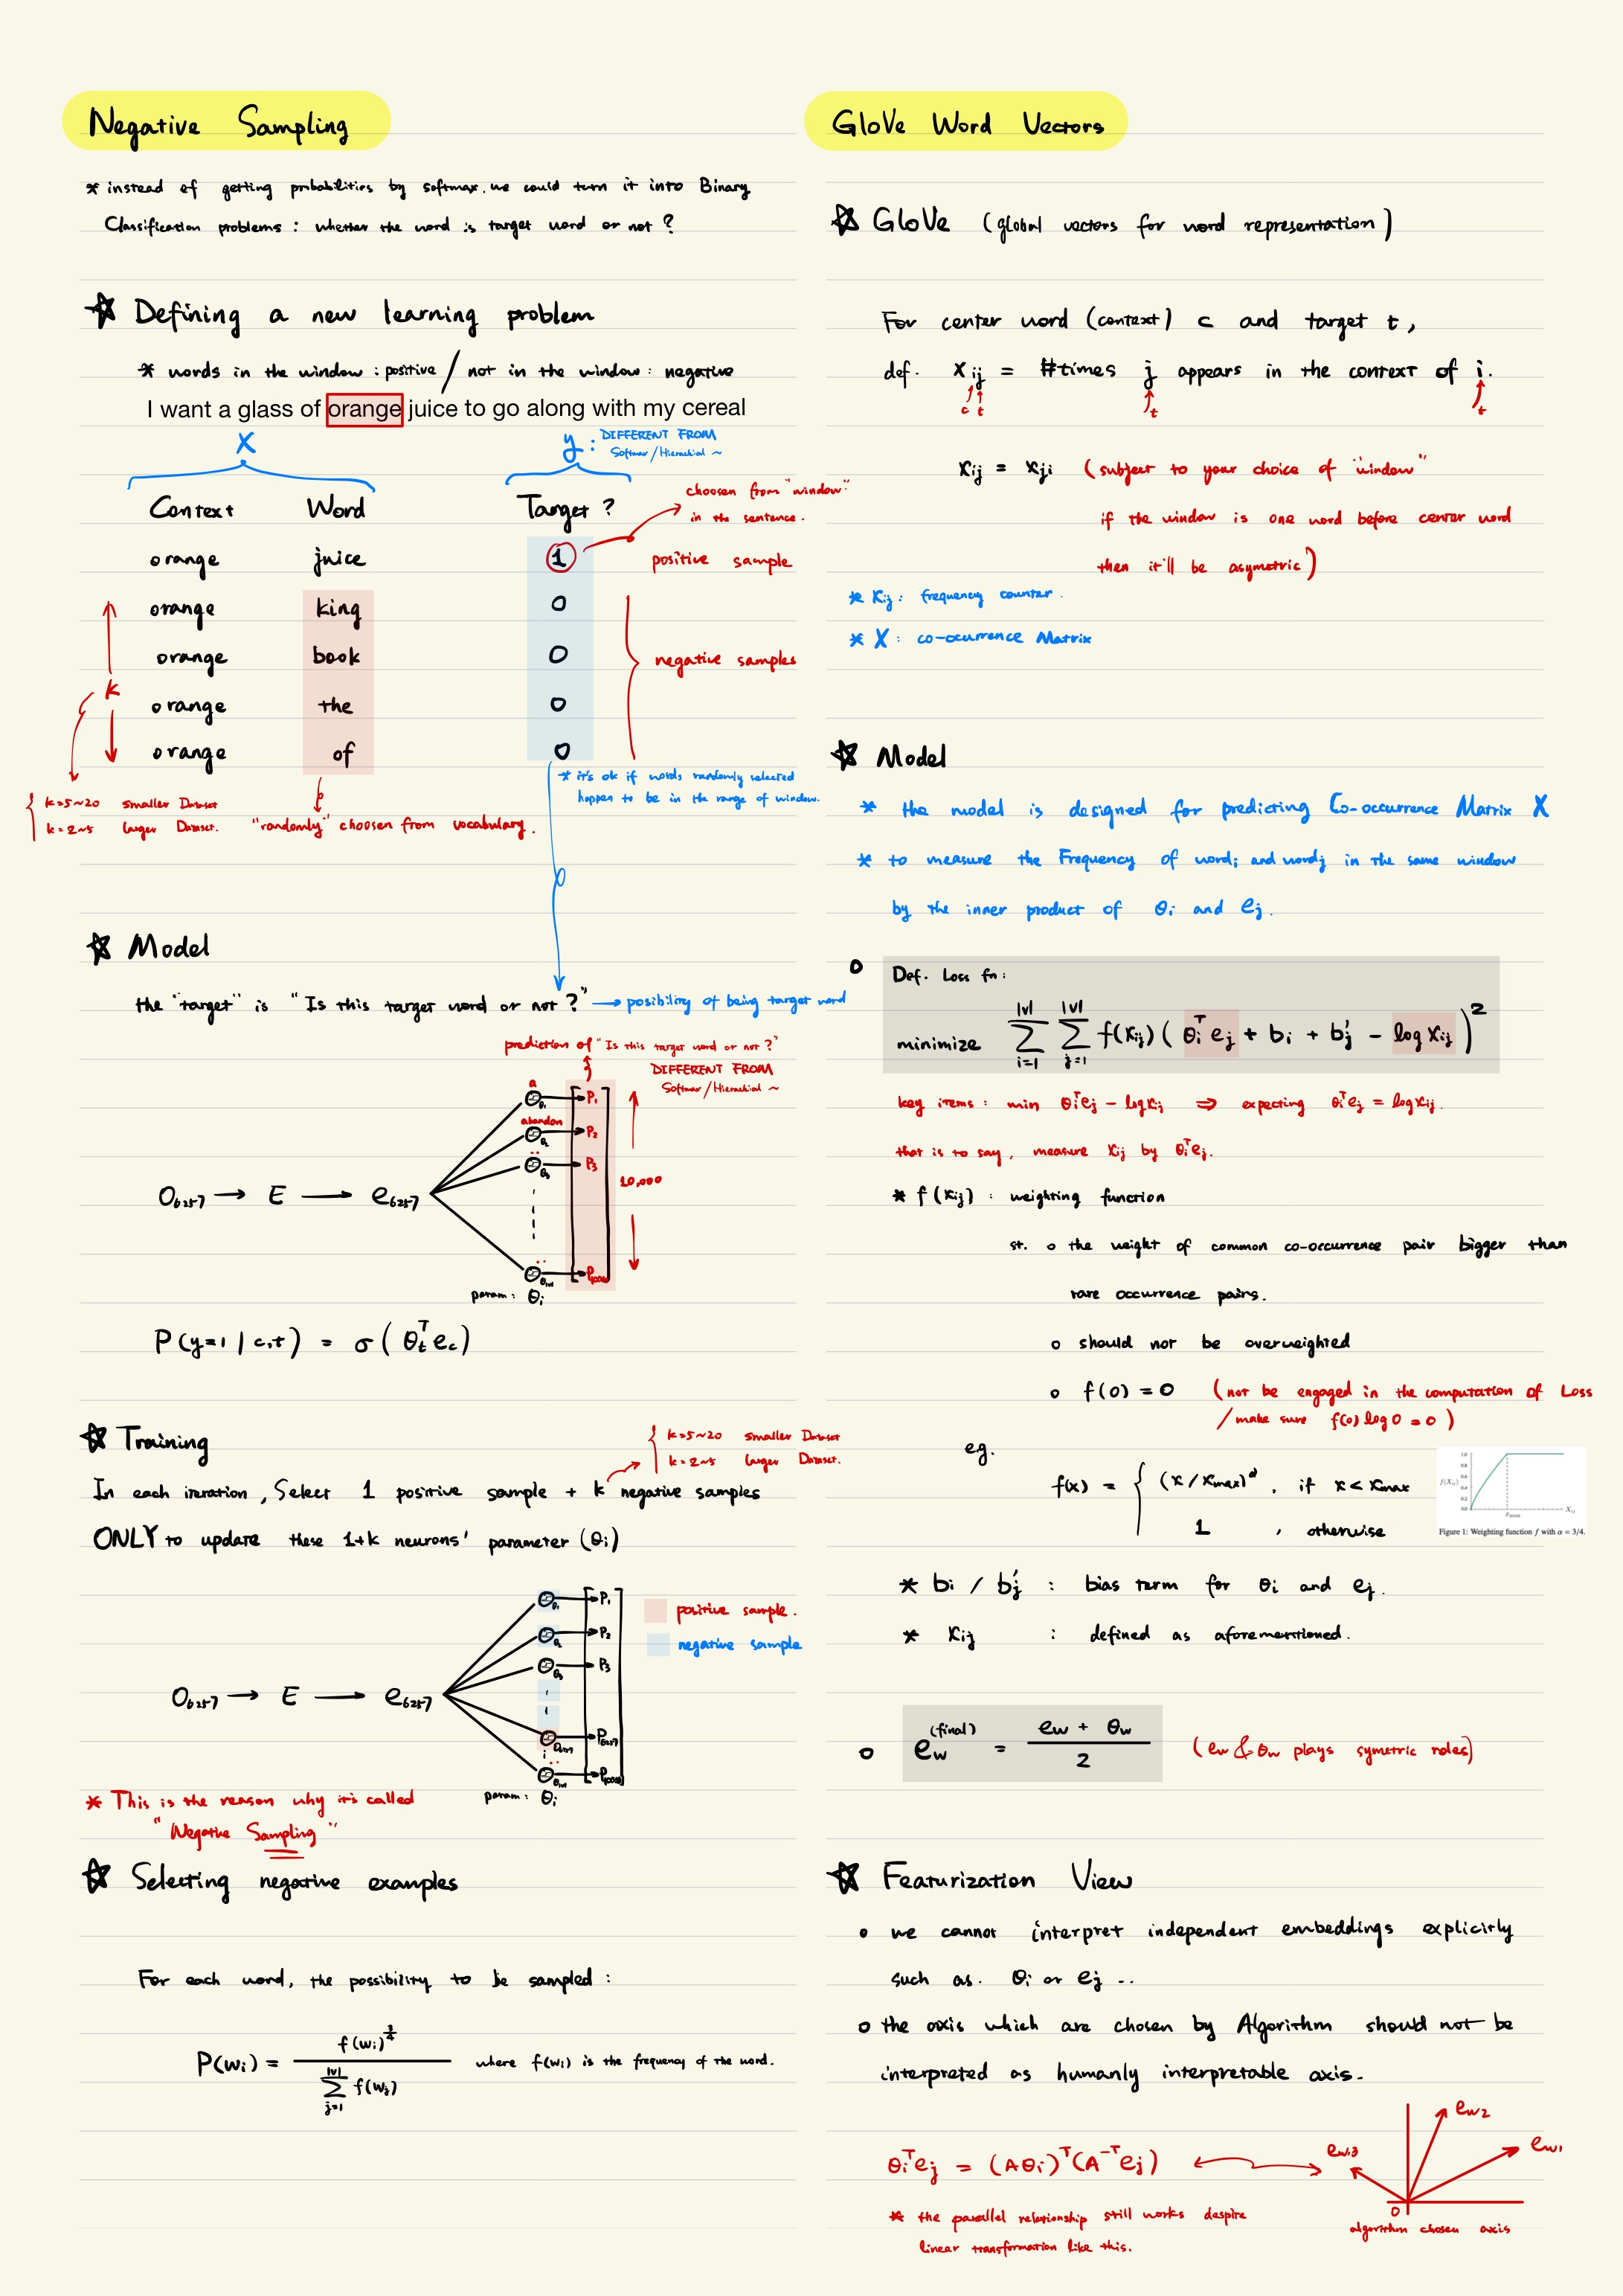 Negative Sampling
* instead of getting probabilities by softmax. we could turn it into Binary
Classification problems : whether the word is target word or not ?
☆ Defining a new learning problem
* words in the window : positive / not in the window : negative
I want a glass of orange juice to go along with my cereal
X
y : DIFFERENT FROM
Softmax/Hierachial ~
Context Word Target ?
choosen from "window"
in the sentence.
orange juice 1 positive sample
orange king 0
orange book 0 negative samples
k
orange the 0
orange of 0
* it's ok if words randomly selected
happen to be in the range of window.
k=5~20 smaller Dataset
k=2~5 larger Dataset.
"randomly" choosen from vocabulary.
☆ Model
the "target" is "Is this target word or not ?" → posibility of being target word
prediction of "Is this target word or not ?"
DIFFERENT FROM
Softmax/Hierachial ~
a θ1 P1
abandon θ2 P2
θ3 P3
10,000
O6257 → E → e6257
P10000
param : θi
P(y=1 | c,t) = σ( θt^T ec )
☆ Training
k=5~20 smaller Dataset
k=2~5 larger Dataset.
In each iteration, Select 1 positive sample + k negative samples
ONLY to update these 1+k neurons' parameter (θi)
θ1 P1
positive sample.
θ2 P2
negative sample
θ3 P3
O6257 → E → e6257
P6257
P10000
param : θi
* This is the reason why it's called
"Negative Sampling"
☆ Selecting negative examples
For each word, the possibility to be sampled :
P(wi) = f(wi)^3/4 / Σ j=1 |V| f(wj) where f(wi) is the frequency of the word.
GloVe Word Vectors
☆ GloVe (global vectors for word representation)
For center word (context) c and target t,
def. Xij = #times j appears in the context of i.
c t t t
Xij = Xji (subject to your choice of "window"
if the window is one word before center word
then it'll be asymetric)
* Xij : frequency counter.
* X : co-ocurrence Matrix
☆ Model
* the model is designed for predicting Co-occurrence Matrix X
* to measure the Frequency of wordi and wordj in the same window
by the inner product of θi and ej.
Def. Loss fn :
minimize Σ i=1 |V| Σ j=1 |V| f(Xij) ( θi^T ej + bi + b'j - log Xij )^2
key items : min θi^T ej - log Xij ⇒ expecting θi^T ej = log Xij.
that is to say, measure Xij by θi^T ej.
* f(Xij) : weighting function
st. o the weight of common co-occurrence pair bigger than
rare occurrence pairs.
o should not be overweighted
o f(0) = 0 (not be engaged in the computation of Loss
/ make sure f(0) log 0 = 0 )
eg.
f(x) = { (x/xmax)^α , if x < xmax
1 , otherwise
1.0
0.8
0.6
0.4
0.2
0.0
f(Xij)
xmax
Xij
Figure 1: Weighting function f with α = 3/4.
* bi / b'j : bias term for θi and ej.
* Xij : defined as aforementioned.
o ew^(final) = ew + θw / 2 (ew & θw plays symetric roles)
☆ Featurization View
o we cannot interpret independent embeddings explicitly
such as. θi or ej ..
o the axis which are chosen by Algorithm should not be
interpreted as humanly interpretable axis.
ew2
ew1
ew3
θi^T ej = (Aθi)^T (A^-T ej)
0
* the parallel relationship still works despite
linear transformation like this.
algorithm chosen axis